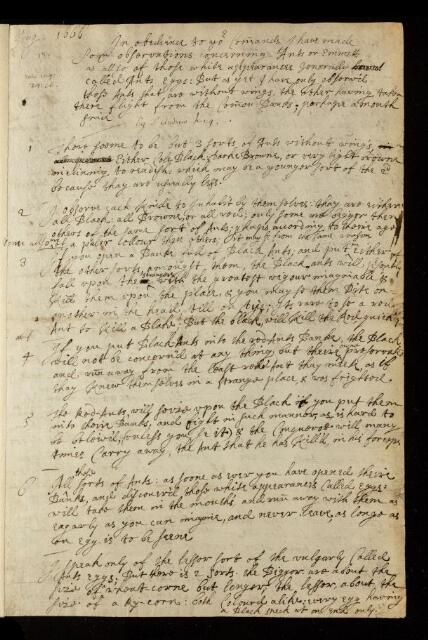 1666
In obedience to yor Comands I have made
some observations concerning Ants or Emmets
as allso of those white appearances Generally
called Ants Eggs: But as yet I have only observed
those Ants that are without wings, the other having taken
there flight from the Comon Banks, perhaps a month
since
1 There seeme to be but 3 sorts of Ants without wings,
Either Cole Black, Darke Browne, or very light browne
inclining to redish, which may be a younger sort of the
because they are usually less.
2 I observe each kinde to Inhabit by themselves: they are either
all Black, all Browne, or all red; only some are bigger then
others of the same sort of Ants; perhaps according to there age
a paler Collour than others;
3 If you open a Bank of Black Ants, and put either of
the other sorts amongst them, the Black Ants will
fall upon them with the greatest vigour imaginable &
kill them upon the place, & you may se them Bite on
another in the head till on dyes; Its rare to se a red
Ant to kill a Black: But the black will kill the Red quickly
4 If you put Black Ants into the red Ants Banke, the Black
will not be concerned at any thing but their preservation
and run away from the least red Ant they meet, as if
they knew themselves in a strange place, & was frighted.
5 the Red Ants, will seize upon the Black if you put them
into their Banks, and fight in such manner as is hard to
be beleived, (unless you se it) & the Conqueror will many
times Carry away, the Ant that he has kill'd in his forceps
6 All sorts of Ants: as soone as ever you have opened their
Banks, and discovered those white appearances Called Eggs:
will take them in the mouths and run away with them as
eagarly as you can imagine, and never leave, as longe as
on Egg is to be seene
I speak only of the lesser sort of the vulgarly Called
Ants Eggs: But there is 2 sorts. the Bigger are about the
size of wheat corne but longer, the lesser, about the
size of a Ry-corn: both Colourd alike: every Egg having
a Black speck at on End only.